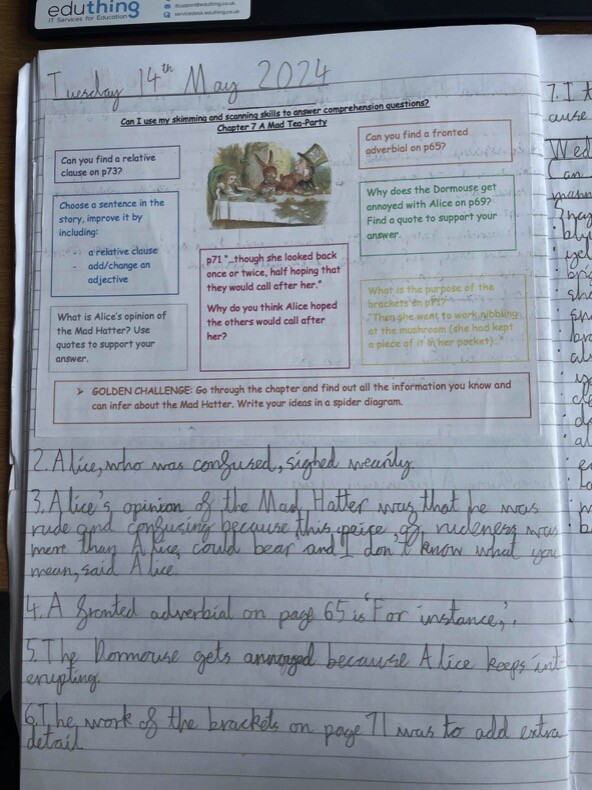 eduthing
IT Services for Education
itsupport@eduthing.co.uk
servicedesk.eduthing.co.uk
Tuesday 14th May 2024
Can I use my skimming and scanning skills to answer comprehension questions?
Chapter 7 A Mad Tea-Party
Can you find a relative
clause on p73?
Choose a sentence in the
story, improve it by
including:
- a relative clause
- add/change an
adjective
What is Alice's opinion of
the Mad Hatter? Use
quotes to support your
answer.
p71 "…though she looked back
once or twice, half hoping that
they would call after her."
Why do you think Alice hoped
the others would call after
her?
Can you find a fronted
adverbial on p65?
Why does the Dormouse get
annoyed with Alice on p69?
Find a quote to support your
answer.
What is the purpose of the
brackets on p71?
"Then she went to work nibbling
at the mushroom (she had kept
a piece of it in her pocket)…"
➤ GOLDEN CHALLENGE: Go through the chapter and find out all the information you know and
can infer about the Mad Hatter. Write your ideas in a spider diagram.
2. Alice, who was confused, sighed wearily.
3. Alice's opinion of the Mad Hatter was that he was
rude and confusing because 'this peice of rudeness was
more than Alice could bear' and 'I don't know what you
mean, said Alice.
4. A fronted adverbial on page 65 is 'For instance,'.
5. The Dormouse gets annoyed because Alice keeps int
erupting.
6. The work of the brackets on page 71 was to add extra
detail.
7. I t
cause
Wed
Can